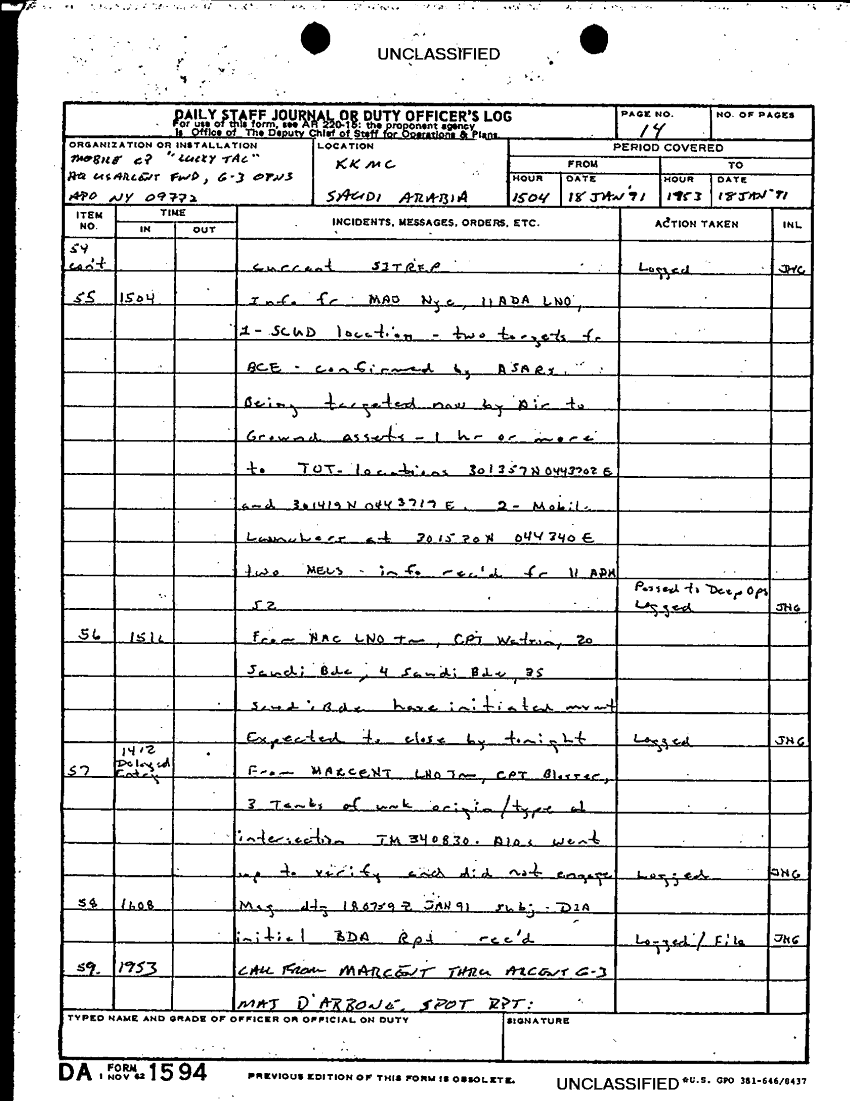 UNCLASSIFIED
DAILY STAFF JOURNAL OR DUTY OFFICER'S LOG
For use of this form, see AR 220-15; the proponent agency
is Office of The Deputy Chief of Staff for Operations & Plans.
PAGE NO.
14
NO. OF PAGES
ORGANIZATION OR INSTALLATION
MOBILE CP "LUCKY TAC"
HQ USARCENT FWD, G-3 OPNS
APO NY 09772
LOCATION
KKMC
SAUDI ARABIA
PERIOD COVERED
FROM
TO
HOUR DATE HOUR DATE
1504 18 JAN '91 1953 18 JAN '91
ITEM NO.
TIME
IN OUT
INCIDENTS, MESSAGES, ORDERS, ETC.
ACTION TAKEN
INL
54
con't current SITREP Logged JHG
55 1504 Info fr MAJ Nye, 11 ADA LNO,
1- SCUD location - two targets fr
BCE - confirmed by ASARS.
Being targeted now by Air to
Ground assets - 1 hr or more
to TOT- locations 301357N 0443702E
and 301419N 0443717E. 2- Mobile
Launchers at 301520N 044340E
two MELS - info rec'd fr 11 ADA
Passed to Deep Ops
52 Logged JHG
56 From NAC LNO Tm, CPT 20
Saudi Bde, 4 Saudi Bde, 35
Saudi Bde have initiated mvmt
Expected to close by tonight Logged JHG
57 1412
Delayed
Entry
From MARCENT LNO Tm, CPT
3 Tanks of unk origin/type at
intersection TM 340830. went
up to verify and did not engage Logged JHG
58 1608 Msg dtg 180759Z JAN 91 subj - DIA
initial BDA Rpt rec'd Logged / File JHG
59. 1953 CALL FROM MARCENT THRU ARCENT G-3
MAJ D'ARBONE. SPOT RPT:
TYPED NAME AND GRADE OF OFFICER OR OFFICIAL ON DUTY
SIGNATURE
DA FORM 1 NOV 62 1594
PREVIOUS EDITION OF THIS FORM IS OBSOLETE.
UNCLASSIFIED
*U.S. GPO 381-646/8437